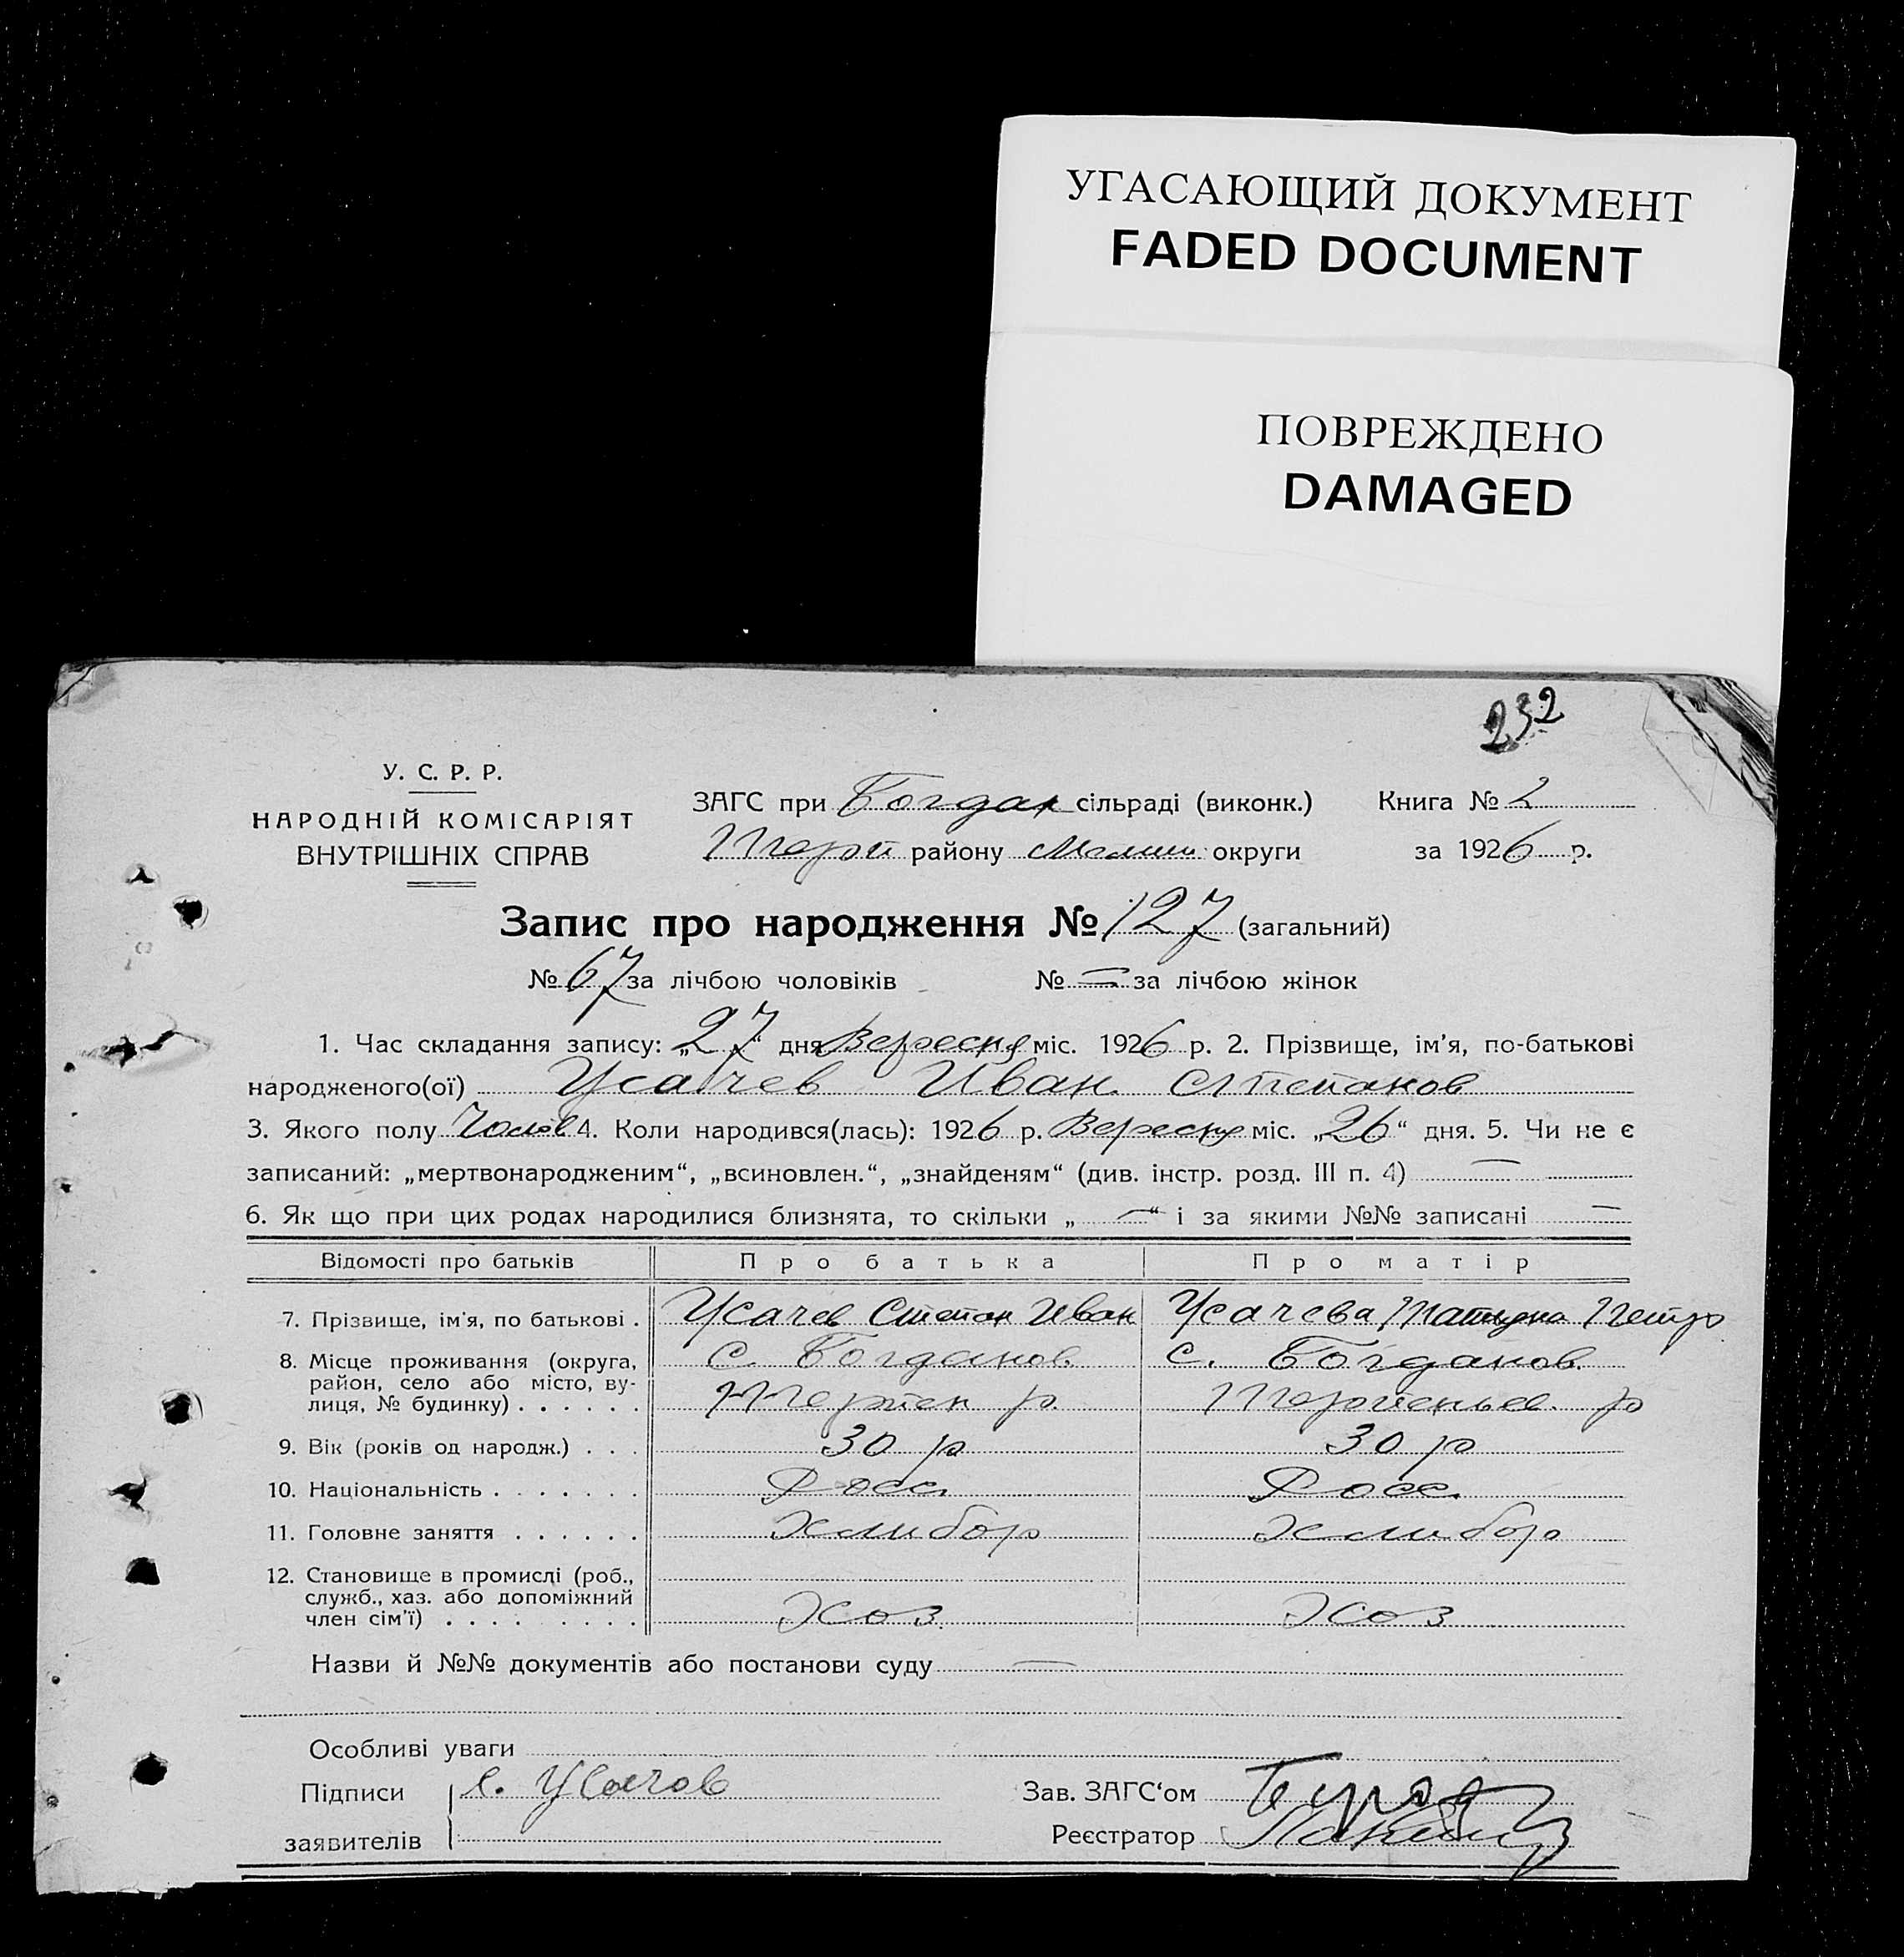 УГАСАЮЩИЙ ДОКУМЕНТ
FADED DOCUMENT
ПОВРЕЖДЕНО
DAMAGED
232
У. С. Р. Р.
НАРОДНІЙ КОМІСАРІЯТ
ВНУТРІШНІХ СПРАВ
ЗАГС при Богдан сільраді (виконк.)
району округи
Книга № 2
за 1926 р.
Запис про народження № 127 (загальний)
№ 67 за лічбою чоловіків № — за лічбою жінок
1. Час складання запису: „27“ дня Вересня міс. 1926 р. 2. Прізвище, ім'я, по-батькові
народженого(ої) Усачев Иван Степанов
3. Якого полу Чолов 4. Коли народився(лась): 1926 р. Вересня міс. „26“ дня. 5. Чи не є
записаний: „мертвонародженим“, „всиновлен.“, „знайденям“ (див. інстр. розд. III п. 4) —
6. Як що при цих родах народилися близнята, то скільки „—“ і за якими №№ записані —
Відомості про батьків Про батька Про матір
7. Прізвище, ім'я, по батькові . Усачев Степан Иван Усачева Татьяна Петро
8. Місце проживання (округа, с. Богданов. с. Богданов.
район, село або місто, ву-
лиця, № будинку) . . . . . . р. р
9. Вік (років од народж.) . . . 30 р 30 р
10. Національність . . . . . . . Росс. Росс.
11. Головне заняття . . . . . . Хлибор Хлибор
12. Становище в промислі (роб.,
служб., хаз. або допоміжний
член сім'ї) . . . . . . . . . Хоз. Хоз
Назви й №№ документів або постанови суду —
Особливі уваги
Підписи С. Усачов
заявителів
Зав. ЗАГС‘ом
Реєстратор